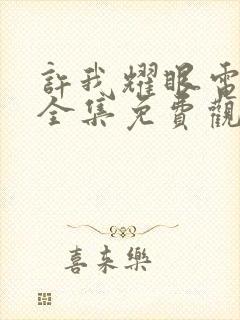 許我耀眼電
全集免費觀
喜來樂